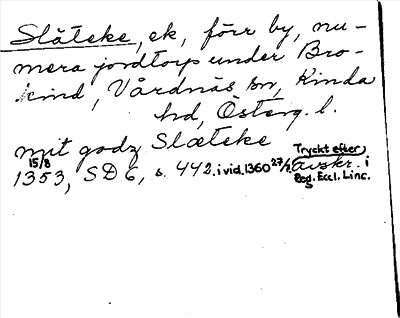 Släteke, ek, förr by, nu-
mera jordtorp under Bro-
kind, Vårdnäs sn, Kinda
hd, Österg. l.
mit godz Slæteke
15/8 Tryckt efter
1353, SD 6, s. 442. i vid. 1360 27/2. avskr. i
Reg. Eccl. Linc.